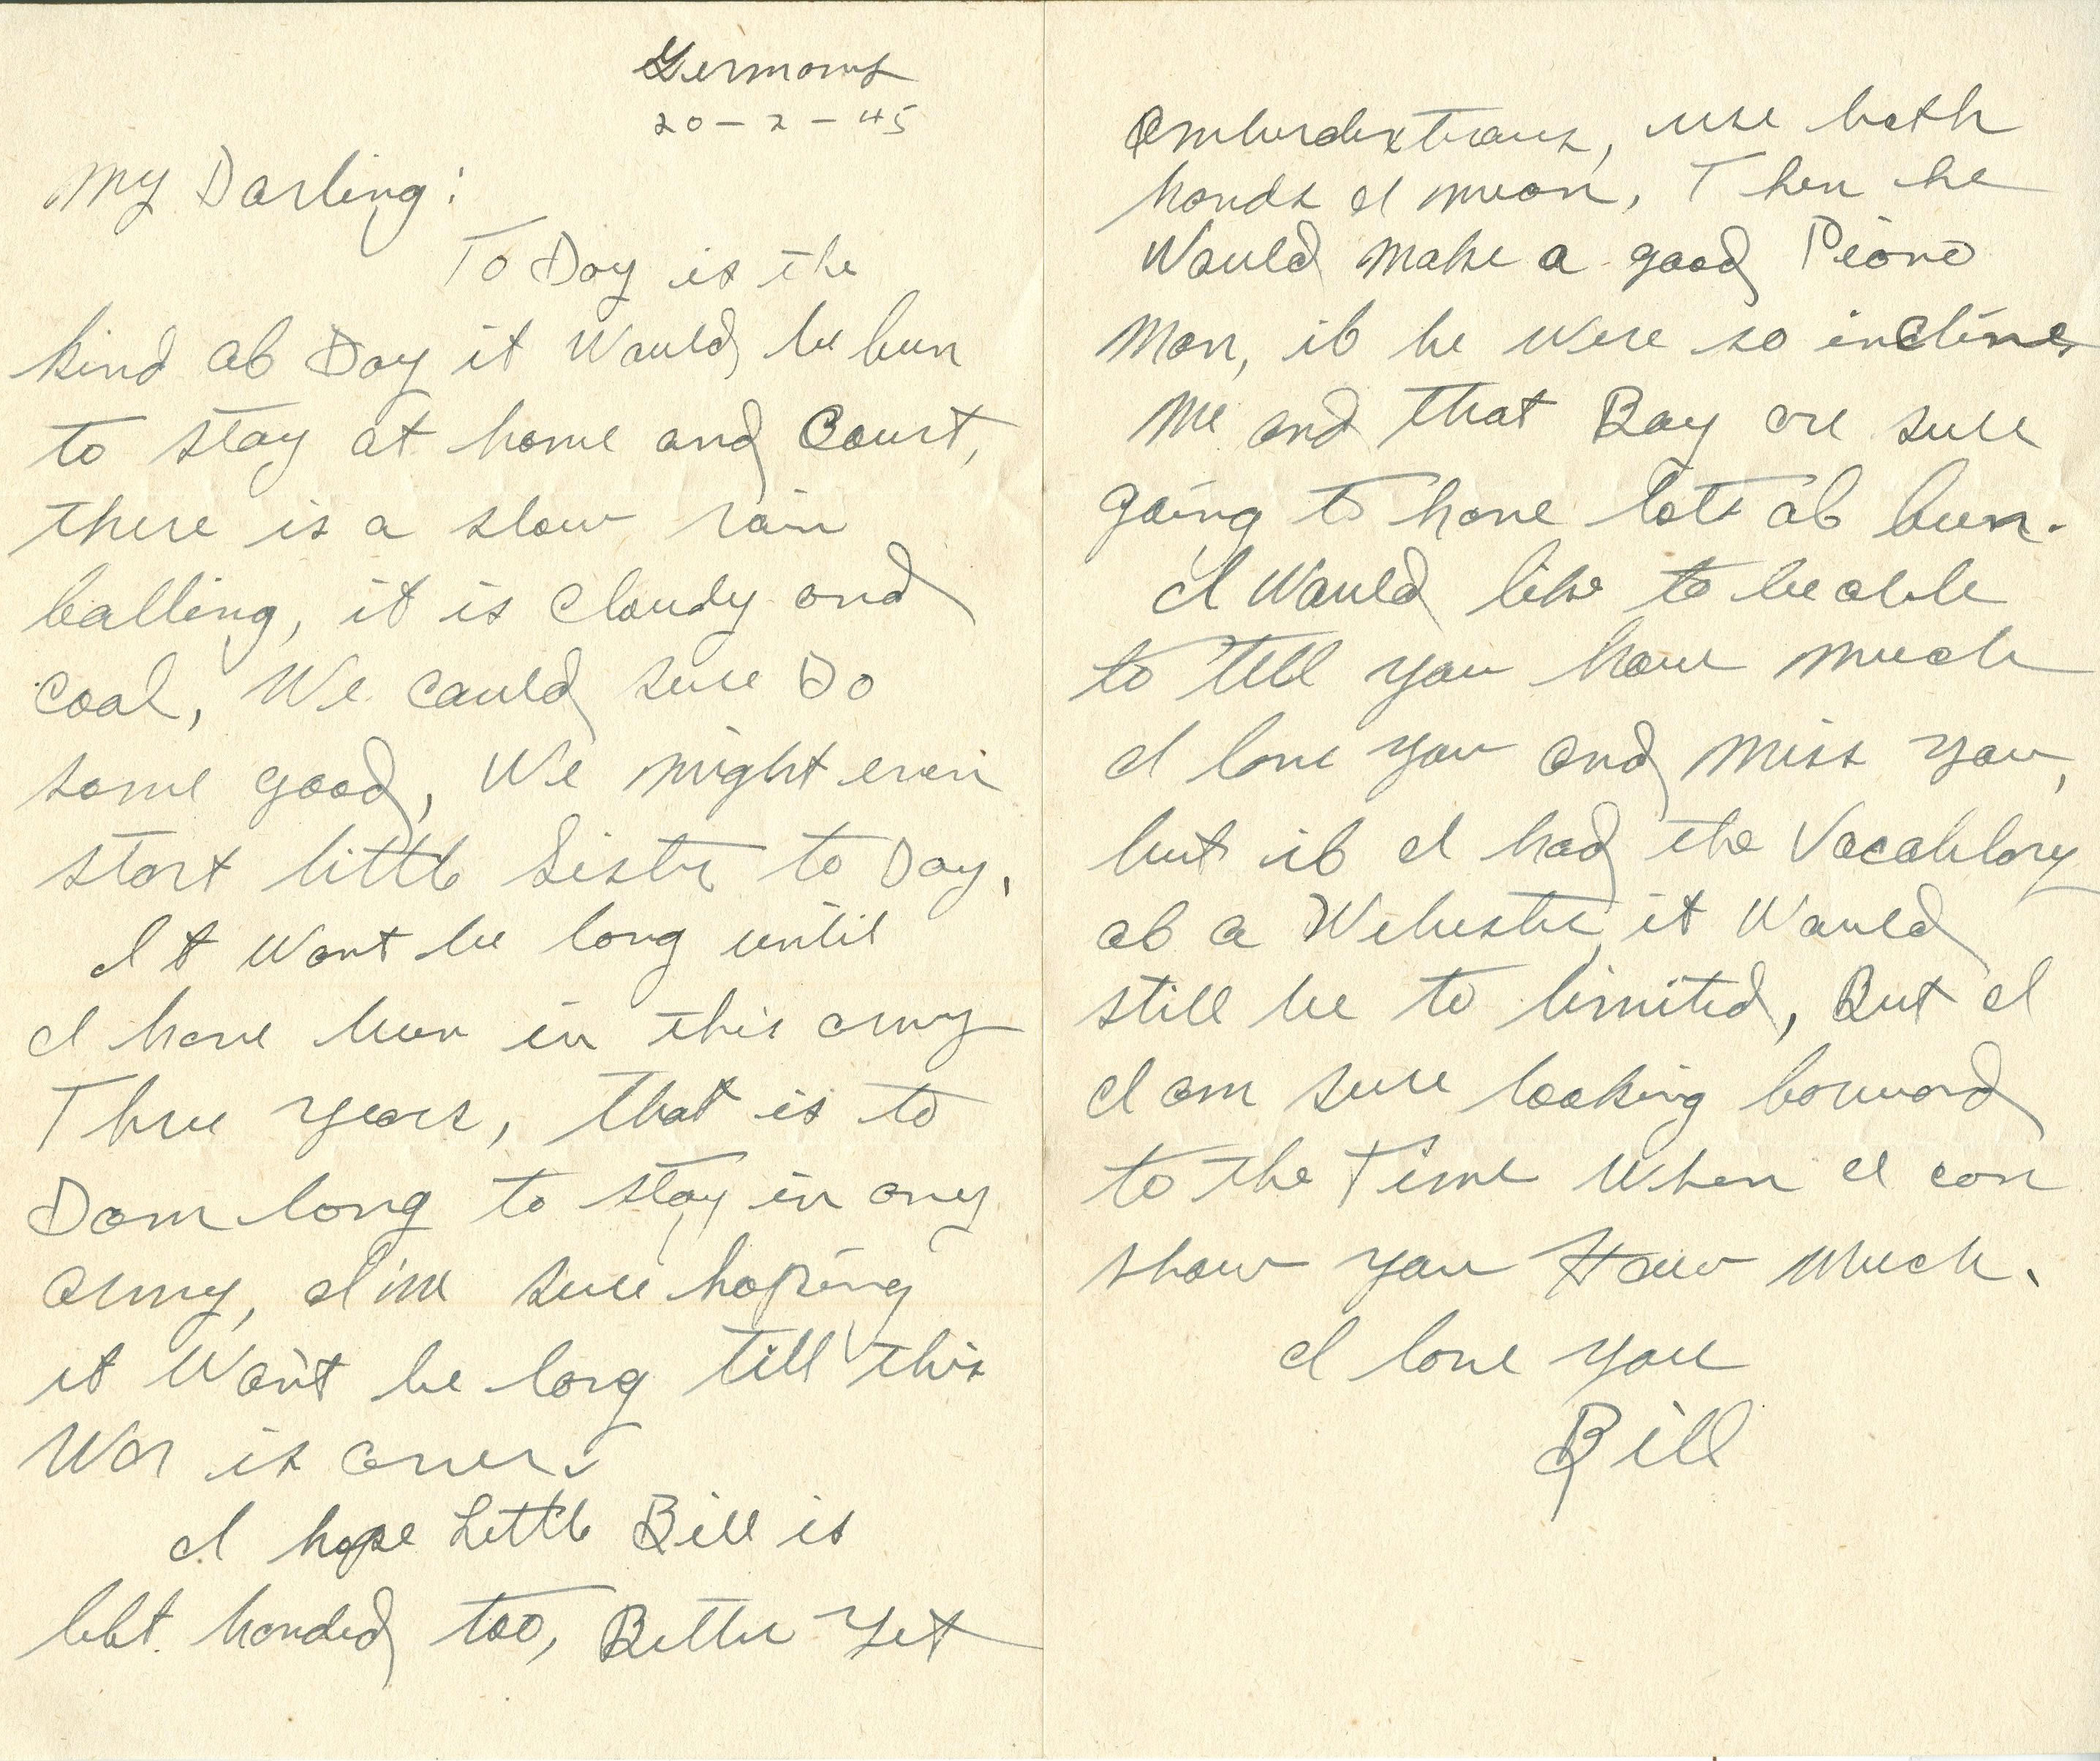 Germany
20-2-45
My Darling:
To Day is the
kind of Day it Would be fun
to stay at home and Court,
there is a slow rain
falling, it is Cloudy and
Cool, We Could sure Do
some good, We might even
start little Sister to Day,
It Wont be long until
I have been in this army
Three years, that is to
Dam long to stay in any
army, I'm sure hoping
it Won't be long till this
War is over.
I hope Little Bill is
left handed too, Better Yet
Amburdextraus, use both
hands I mean, Then he
Would Make a good Piano
Man, if he Were so incline,
Me and that Boy are sure
going to have lots of fun.
I Would like to be able
to tell you how much
I love you and Miss you,
but if I had the Vocablary
of a Webster, it Would
still be to limited, But I
I am sure looking forward
to the Time When I can
show you How Much.
I love you
Bill